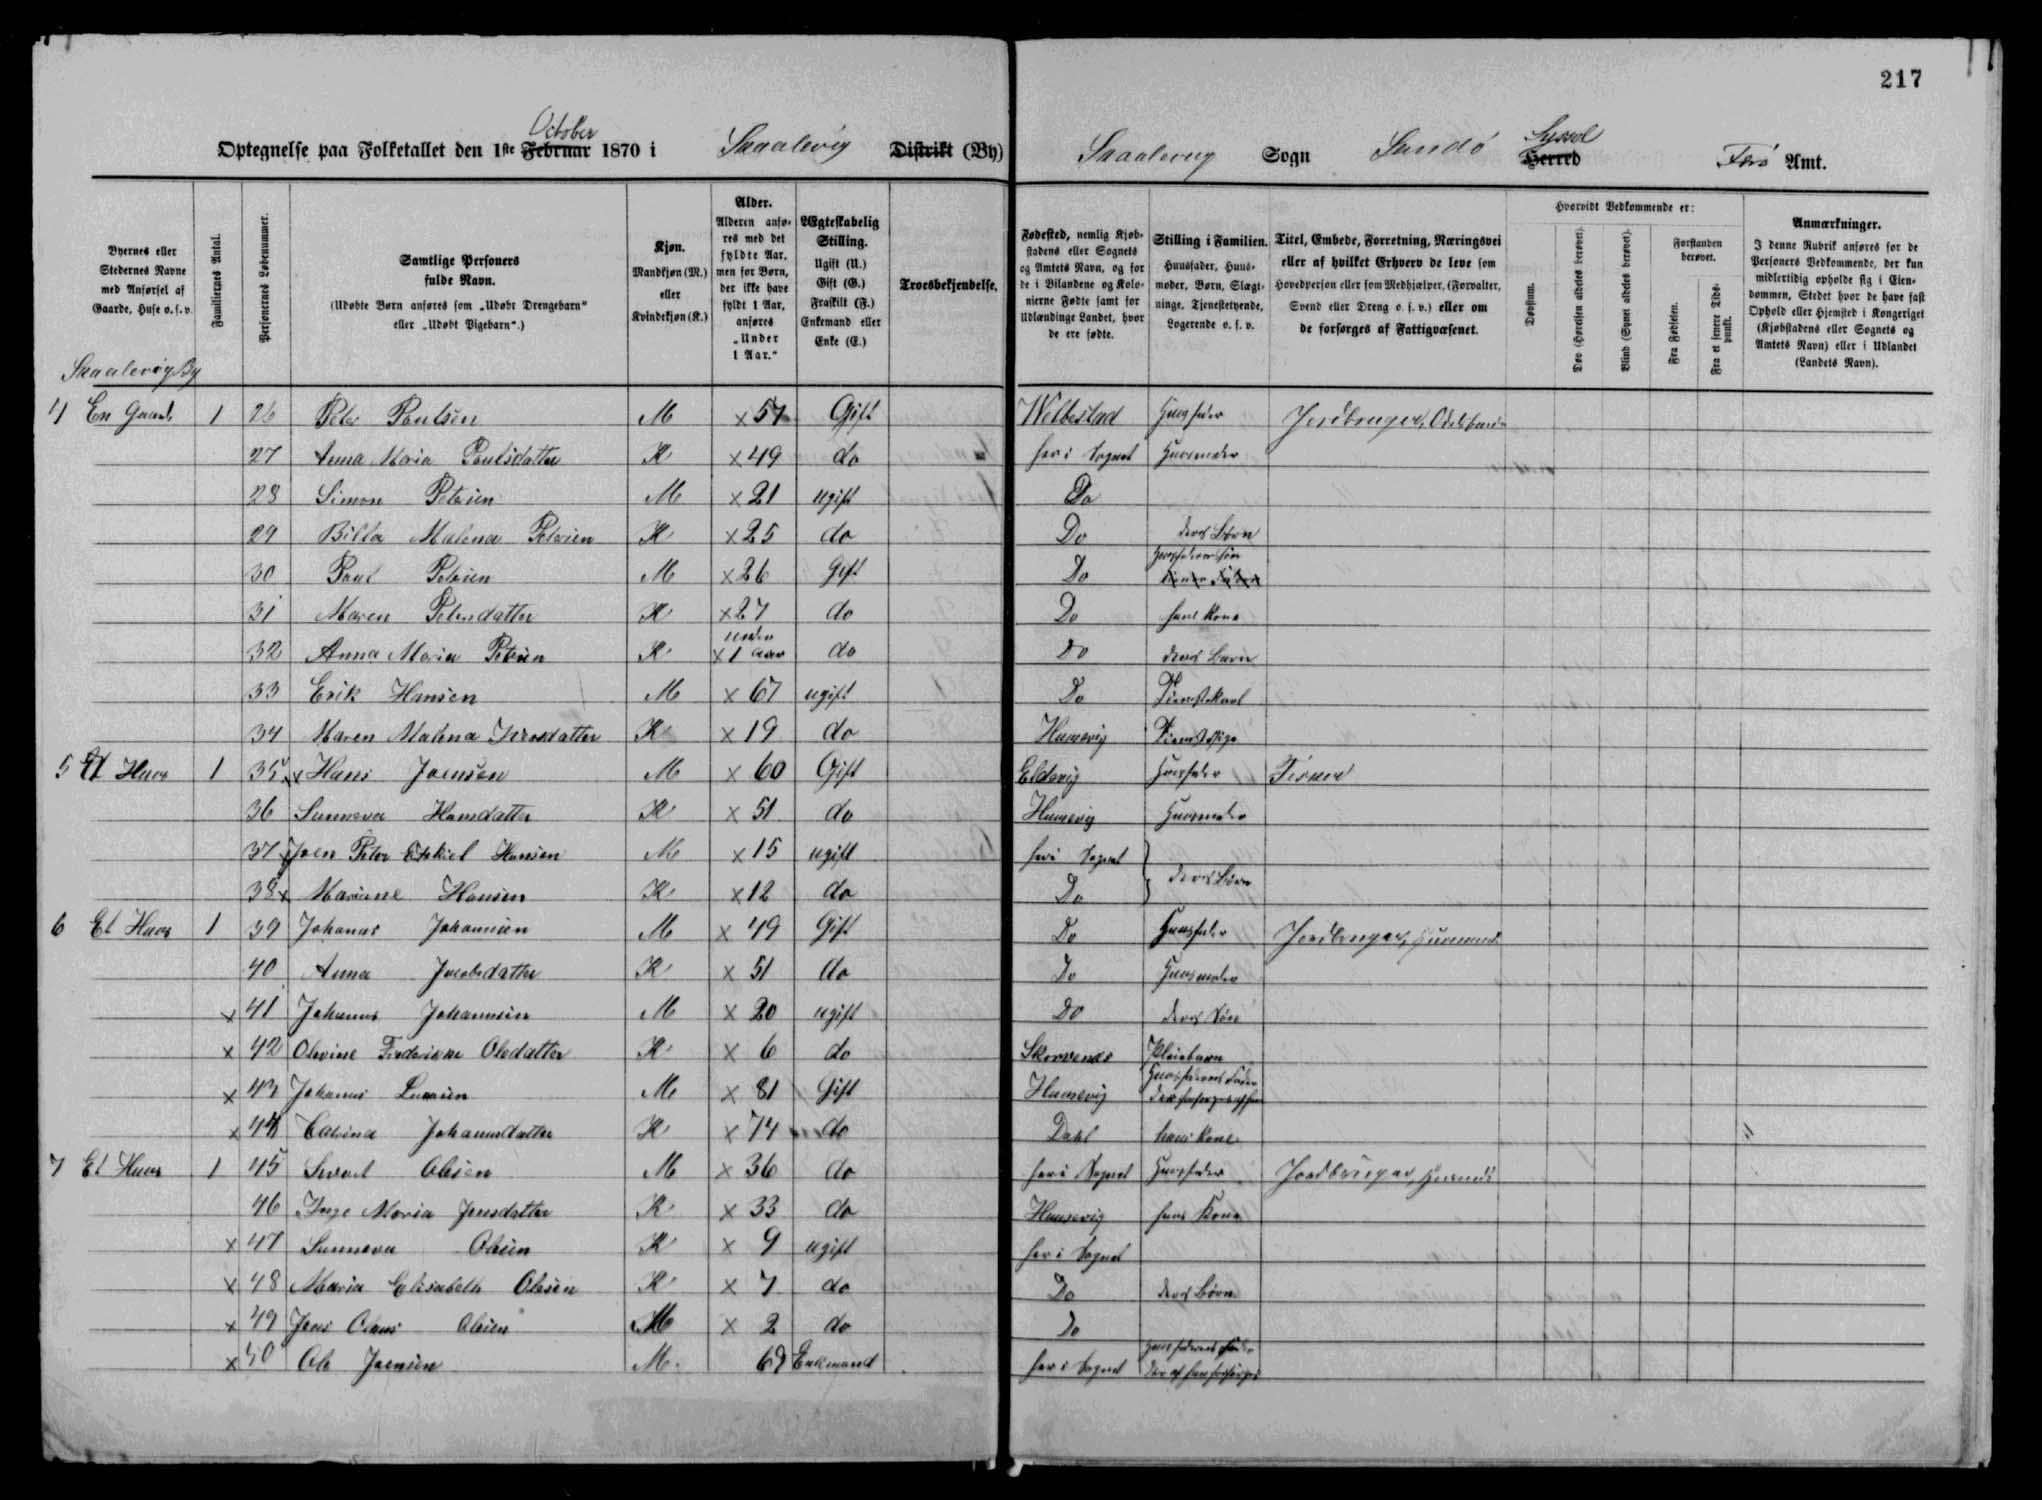 217
October
Optegnelse paa Folketallet den 1ste Februar 1870 i Skaalevig Distrikt (By)
Skaalevig Sogn Sandø Syssel Herred Færø Amt.
Byernes eller Stedernes Navne med Anførsel af Gaarde, Huse o. s. v.
Familiernes Antal.
Personernes Løbenummer.
Samtlige Personers fulde Navn.
(Udøbte Børn anføres som „Udøbt Drengebarn“ eller „Udøbt Pigebarn“.)
Kjøn.
Mandkjøn (M.) eller Kvindekjøn (K.)
Alder.
Alderen anføres med det fyldte Aar, men for Børn, der ikke have fyldt 1 Aar, anføres „Under 1 Aar.“
Ægteskabelig Stilling.
Ugift (U.) Gift (G.) Fraskilt (F.) Enkemand eller Enke (E.)
Troesbekjendelse.
Fødested, nemlig Kjøbstadens eller Sognets og Amtets Navn, og for de i Bilandene og Kolonierne Fødte samt for Udlændinge Landet, hvor de ere fødte.
Stilling i Familien.
Huusfader, Huusmoder, Børn, Slægtninge, Tjenestetyende, Logerende o. s. v.
Titel, Embede, Forretning, Næringsvei eller af hvilket Erhverv de leve som Hovedperson eller som Medhjælper, (Forvalter, Svend eller Dreng o. s. v.) eller om de forsørges af Fattigvæsenet.
Hvorvidt Vedkommende er:
Døvstum.
Døv (Hørelsen aldeles berøvet).
Blind (Synet aldeles berøvet).
Forstanden berøvet.
Fra Fødselen.
Fra et senere Tidspunkt.
Anmærkninger.
I denne Rubrik anføres for de Personers Vedkommende, der kun midlertidig opholde sig i Eiendommen, Stedet hvor de have fast Ophold eller Hjemsted i Kongeriget (Kjøbstadens eller Sognets og Amtets Navn) eller i Udlandet (Landets Navn).
Skaalevig By
4 En Gaard 1 26 Peter Poulsen M x 57 Gift Welbestad Huusfader Jordbruger,
27 Anna Maria Poulsdatter K x 49 do her i Sognet Huusmoder
28 Simon Petersen M x 21 ugift Do
29 Billa Malena Petersen K x 25 do Do deres Børn
30 Poul Petersen M x 26 Gift Do Huusfaderens Søn
31 Maren Petersdatter K x 27 do Do hans Kone
32 Anna Maria Petersen K x under 1 Aar do Do deres Barn
33 Erik Hansen M x 67 ugift Do Tienestekarl
34 Maren Malena K x 19 do Huusevig Tienestepige
5 Et Huus 1 35 x Hans Joensen M x 60 Gift Eldevig Huusfader Fisker
36 Sunneva Hansdatter K x 51 do Huusevig Huusmoder
37 x Joen Peter Ezekiel Hansen M x 15 ugift her i Sognet
38 x Mariane Hansen K x 12 do Do deres Børn
6 Et Huus 1 39 Johanes Johannesen M x 49 Gift Do Huusfader Jordbruger, Huusmand
40 Anna Jacobsdatter K x 51 do Do Huusmoder
x 41 Johannes Johannesen M x 20 ugift Do deres Søn
x 42 Olevine Frederikke Olsdatter K x 6 do Skorvenes Pleiebarn
x 43 Johanes M x 81 Gift Huusevig Huusfaderens Fader
x 44 Catrina Johannesdatter K x 74 do Dahl hans Kone "
7 Et Huus 1 45 Olesen M x 36 do her i Sognet Huusfader Jordbruger, Huusmand
46 Inge Maria Jensdatter K x 33 do Huusevig hans Kone
x 47 Sunneva Olesen K x 9 ugift her i Sognet
x 48 Maria Elisabeth Olesen K x 7 do Do deres Børn
x 49 Jens Claus Olesen M x 2 do Do
x 50 Ole Joensen M. 69 Enkemand her i Sognet Huusfaderens Fader